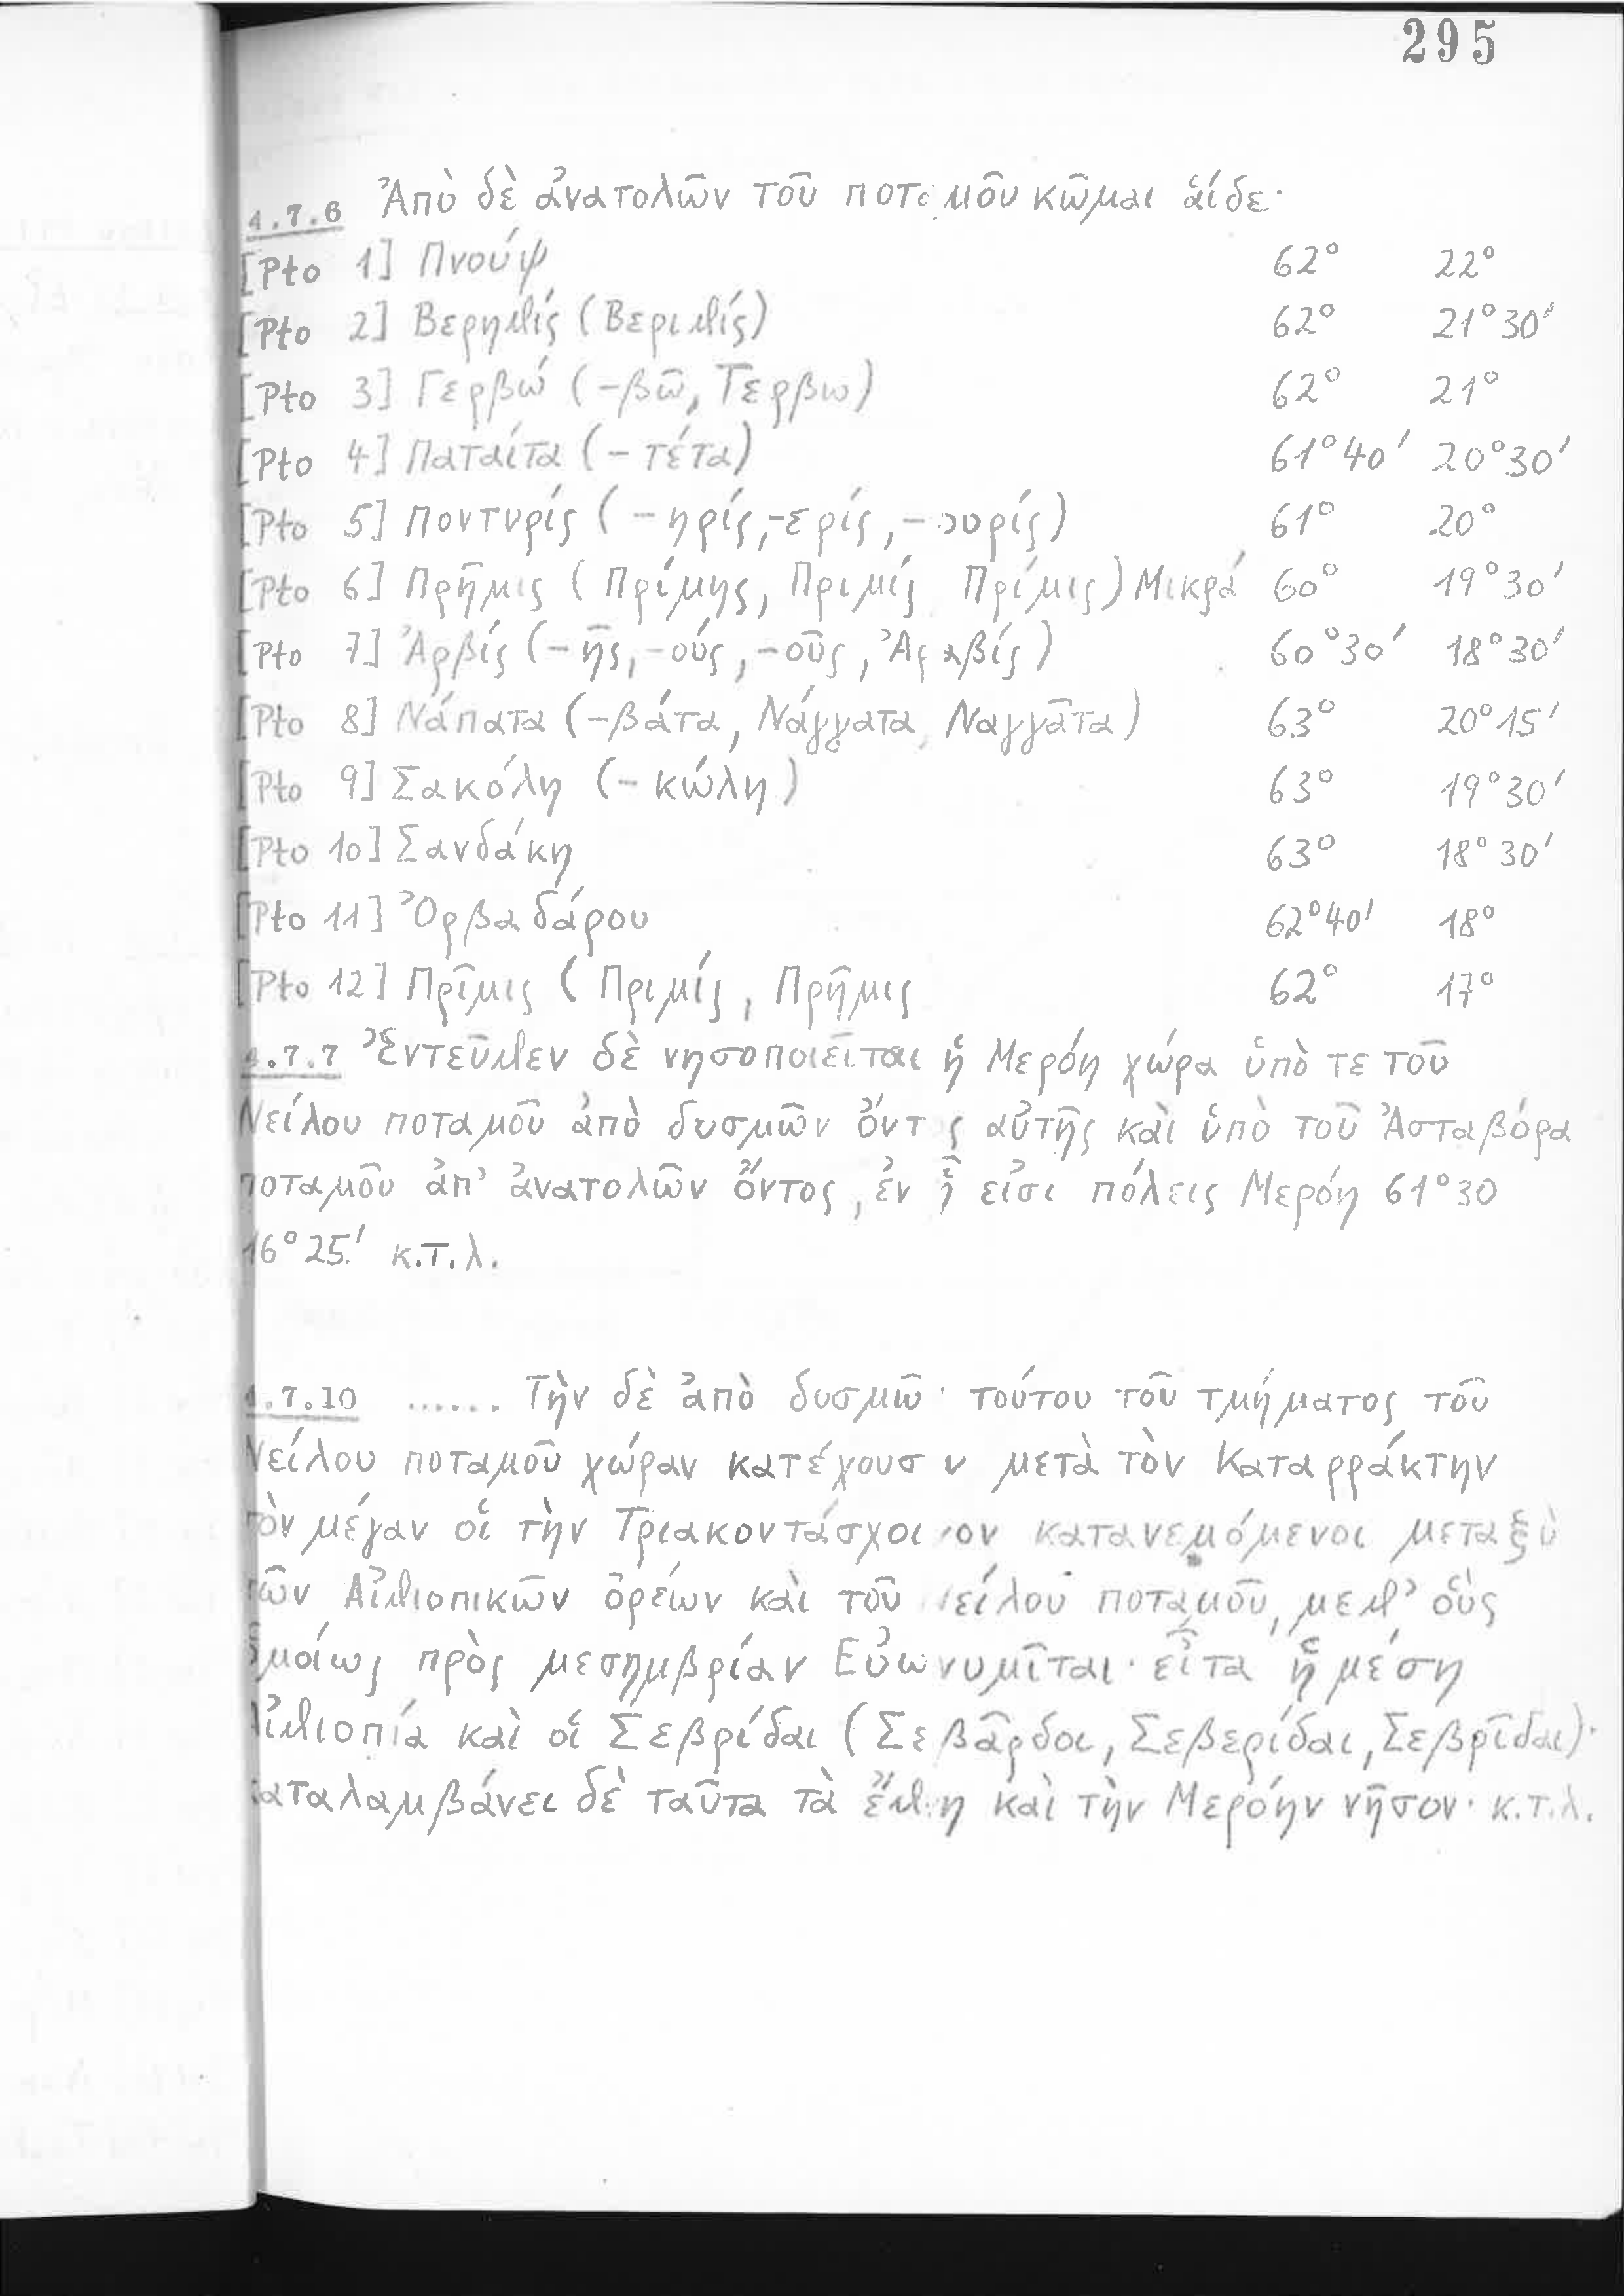 295
4.7.6 Ἀπὸ δὲ ἀνατολῶν τοῦ ποταμοῦ κῶμαι αἵδε·
[Pto 1] Πνούψ 62° 22°
[Pto 2] Βερηθίς (Βεριθίς) 62° 21°30'
[Pto 3] Γερβώ (-βῶ, Τερβω) 62° 21°
[Pto 4] Παταίτα (-τέτα) 61°40' 20°30'
[Pto 5] Ποντυρίς (-ηρίς,-ερίς,-ουρίς) 61° 20°
[Pto 6] Πρῆμις (Πρίμης, Πριμίς Πρίμις) Μικρά 60° 19°30'
[Pto 7] Ἀρβίς (-ῆς,-ούς,-οῦς, Ἀραβίς) 60°30' 18°30'
[Pto 8] Νάπατα (-βάτα, Νάγγατα, Ναγγᾶτα) 63° 20°15'
[Pto 9] Σακόλη (-κώλη) 63° 19°30'
[Pto 10] Σανδάκη 63° 18°30'
[Pto 11] Ὀρβαδάρου 62°40' 18°
[Pto 12] Πρῖμις (Πριμίς, Πρῆμις 62° 17°
4.7.7 Ἐντεῦθεν δὲ νησοποιεῖται ἡ Μερόη χώρα ὑπὸ τε τοῦ
Νείλου ποταμοῦ ἀπὸ δυσμῶν ὄντος αὐτῆς καὶ ὑπὸ τοῦ Ἀσταβόρα
ποταμοῦ ἀπ' ἀνατολῶν ὄντος, ἐν ᾗ εἰσι πόλεις Μερόη 61°30
16°25' κ.τ.λ.
4.7.10 ...... Τὴν δὲ ἀπὸ δυσμῶν τούτου τοῦ τμήματος τοῦ
Νείλου ποταμοῦ χώραν κατέχουσιν μετὰ τὸν Καταρράκτην
τὸν μέγαν οἱ τὴν Τριακοντάσχοινον κατανεμόμενοι μεταξὺ
τῶν Αἰθιοπικῶν ὀρείων καὶ τοῦ Νείλου ποταμοῦ, μεθ' οὓς
ὁμοίως πρὸς μεσημβρίαν Εὐωνυμῖται· εἶτα ἡ μέση
Αἰθιοπία καὶ οἱ Σεβρίδαι (Σεβᾶρδοι, Σεβερίδαι, Σεβρῖδαι)·
καταλαμβάνει δὲ ταῦτα τὰ ἔθνη καὶ τὴν Μερόην νῆσον· κ.τ.λ.